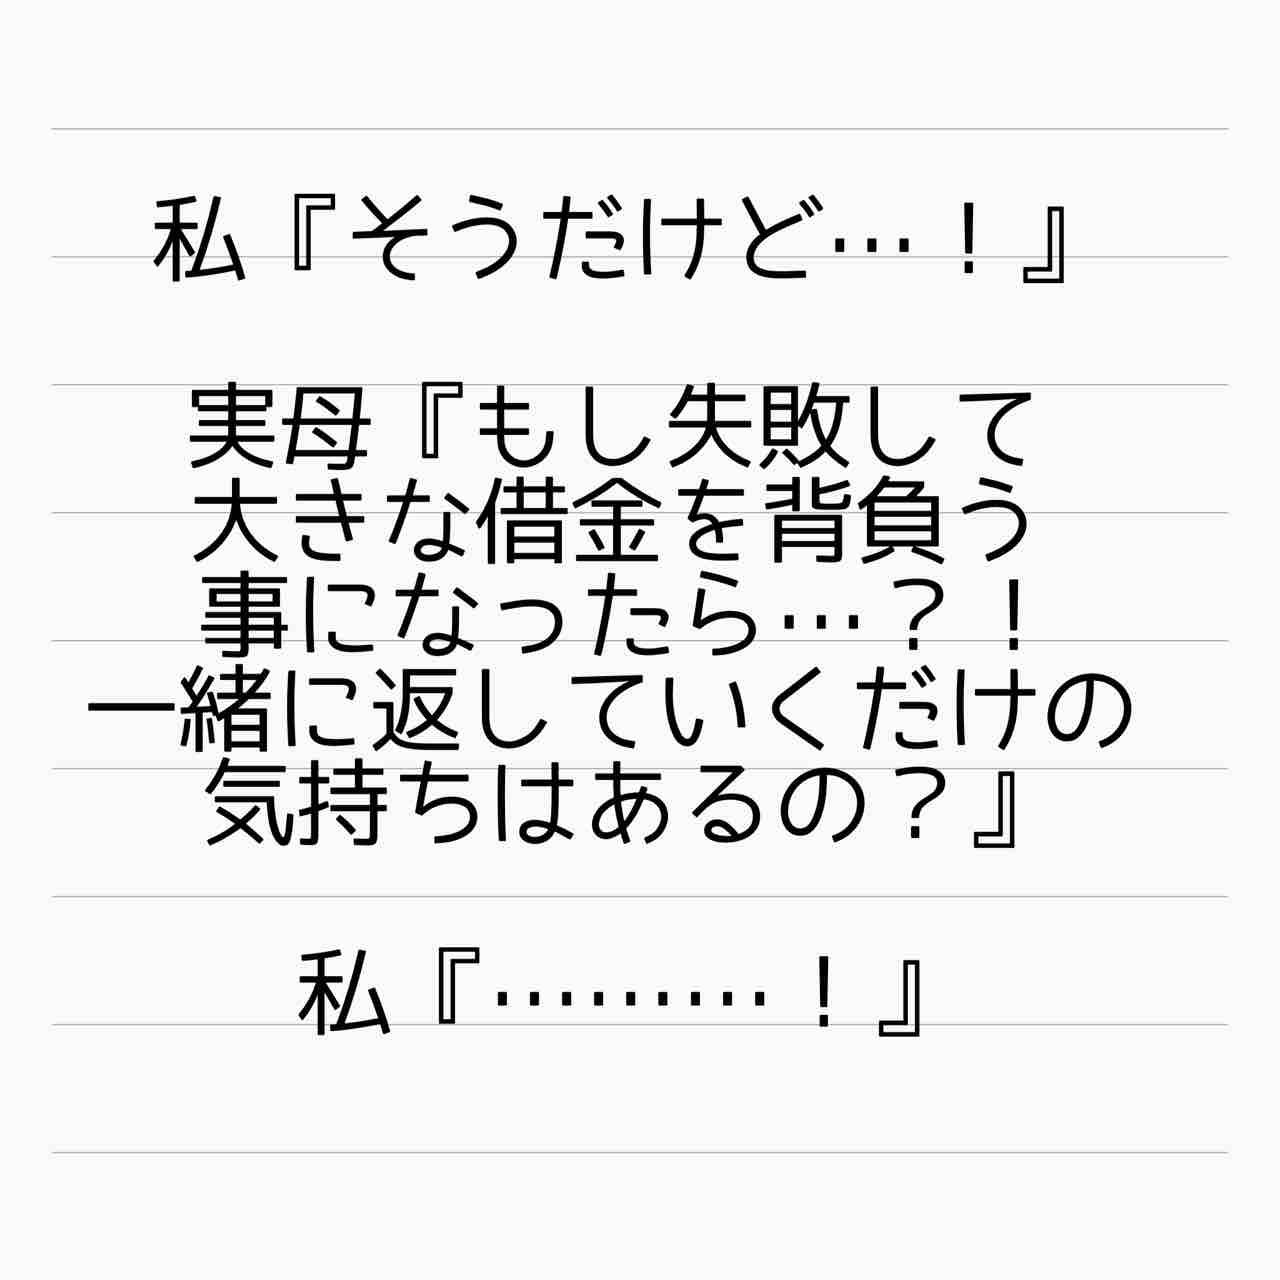 私『そうだけど…！』
実母『もし失敗して
大きな借金を背負う
事になったら…？！
一緒に返していくだけの
気持ちはあるの？』
私『………！』